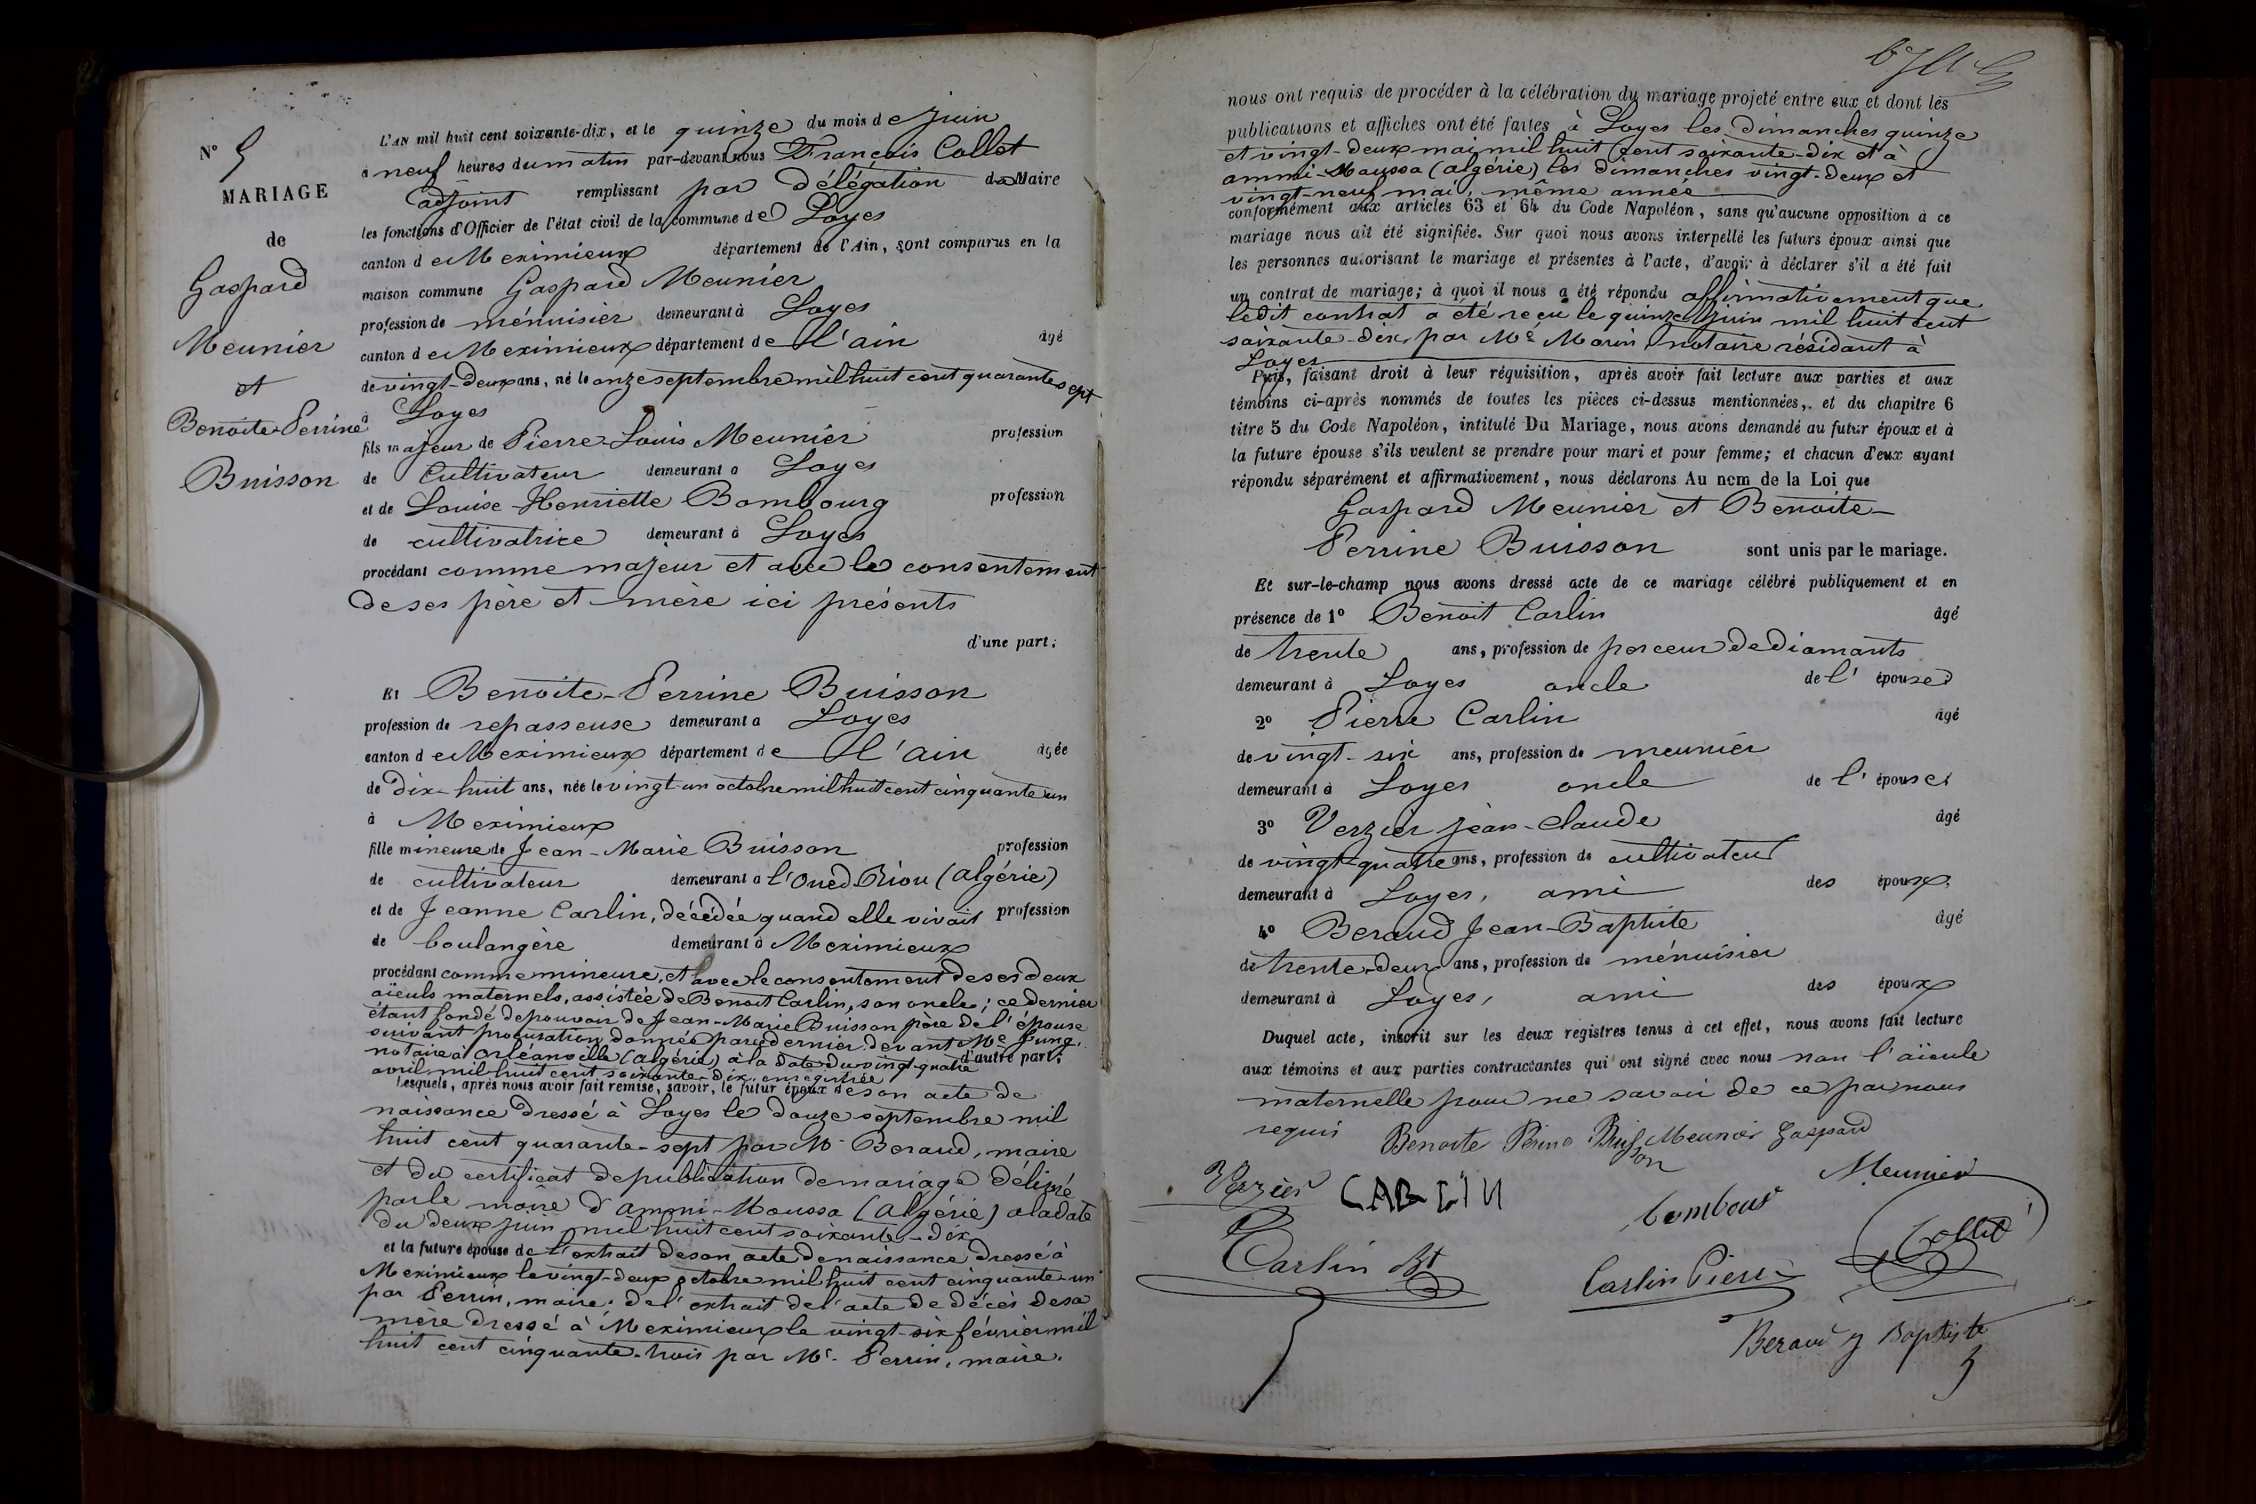 N° 5
MARIAGE
de
Gaspard
Meunier
et
Benoite-Perrine
Buisson
L'AN mil huit cent soixante-dix, et le quinze du mois de juin
à neuf heures du matin par-devant nous François Collet
adjoint remplissant par délégation du Maire
les fonctions d'Officier de l'état civil de la commune de Loyes
canton de Meximieux département de l'Ain, sont comparus en la
maison commune Gaspard Meunier
profession de ménuisier demeurant à Loyes
canton de Meximieux département de l'ain âgé
de vingt-deux ans, né le onze septembre mil huit cent quarante sept
à Loyes
fils majeur de Pierre-Louis Meunier profession
de Cultivateur demeurant à Loyes
et de Louise-Henriette Bombourg profession
de cultivatrice demeurant à Loyes
procédant comme majeur et avec le consentement
de ses père et mère ici présents
d'une part;
Et Benoite-Perrine Buisson
profession de repasseuse demeurant à Loyes
canton de Meximieux département de l'ain âgée
de dix-huit ans, née le vingt-un octobre mil huit cent cinquante un
à Meximieux
fille mineure de Jean-Marie Buisson profession
de cultivateur demeurant à l'Oued-Riou (algérie)
et de Jeanne Carlin, décédée quand elle vivait profession
de boulangère demeurant à Meximieux
procédant comme mineure, et avec le consentement de ses deux
aïeuls maternels, assistée de Benoit Carlin, son oncle; ce dernier
étant fondé de pouvoir de Jean-Marie Buisson père de l'épouse
suivant procuration donnée par ce dernier devant Me Jung,
notaire à Orléansville (algérie) à la date du vingt-quatre d'autre part;
avril mil huit cent soixante-dix, enregistrée
Lesquels, après nous avoir fait remise, savoir, le futur époux de son acte de
naissance dressé à Loyes le douze septembre mil
huit cent quarante-sept par Mr Beraud, maire
et du certificat de publication de mariage délivré
par le maire d'ammi-Moussa (Algérie) à la date
du deux juin mil huit cent soixante-dix
et la future épouse de l'extrait de son acte de naissance dressé à
Meximieux le vingt-deux octobre mil huit cent cinquante-un
par Perrin, maire; de l'extrait de l'acte de décès de sa
mère dressé à Meximieux le vingt-six février mil
huit cent cinquante-trois par Mr. Perrin, maire.
nous ont requis de procéder à la célébration du mariage projeté entre eux et dont les
publications et affiches ont été faites à Loyes les dimanches quinze
et vingt-deux mai mil huit cent soixante-dix et à
ammi-Moussa (algérie) les dimanches vingt-deux et
vingt-neuf mai, même année
conformément aux articles 63 et 64 du Code Napoléon, sans qu'aucune opposition à ce
mariage nous ait été signifiée. Sur quoi nous avons interpellé les futurs époux ainsi que
les personnes autorisant le mariage et présentes à l'acte, d'avoir à déclarer s'il a été fait
un contrat de mariage; à quoi il nous a été répondu affirmativement que
ledit contrat a été reçu le quinze juin mil huit cent
soixante-dix, par Me Morin notaire résidant à
Loyes
Puis, faisant droit à leur réquisition, après avoir fait lecture aux parties et aux
témoins ci-après nommés de toutes les pièces ci-dessus mentionnées, et du chapitre 6
titre 5 du Code Napoléon, intitulé Du Mariage, nous avons demandé au futur époux et à
la future épouse s'ils veulent se prendre pour mari et pour femme; et chacun d'eux ayant
répondu séparément et affirmativement, nous déclarons Au nom de la Loi que
Gaspard Meunier et Benoite-
Perrine Buisson sont unis par le mariage.
Et sur-le-champ nous avons dressé acte de ce mariage célébré publiquement et en
présence de 1° Benoit Carlin âgé
de trente ans, profession de perceur de diamants
demeurant à Loyes oncle de l'épouse
2° Pierre Carlin âgé
de vingt-six ans, profession de meunier
demeurant à Loyes oncle de l'épouse
3° Verzier Jean-Claude âgé
de vingt-quatre ans, profession de cultivateur
demeurant à Loyes, ami des époux,
4° Beraud Jean-Baptiste âgé
de trente-deux ans, profession de ménuisier
demeurant à Loyes, ami des époux
Duquel acte, inscrit sur les deux registres tenus à cet effet, nous avons fait lecture
aux témoins et aux parties contractantes qui ont signé avec nous non l'aïeule
maternelle pour ne savoir de ce par nous
requis Benoite Perine Buisson Meunier Gaspard
Verzier CARLIN bombour Meunier
Carlin Bt Carlin Pierre Collet
Beraud J Baptiste